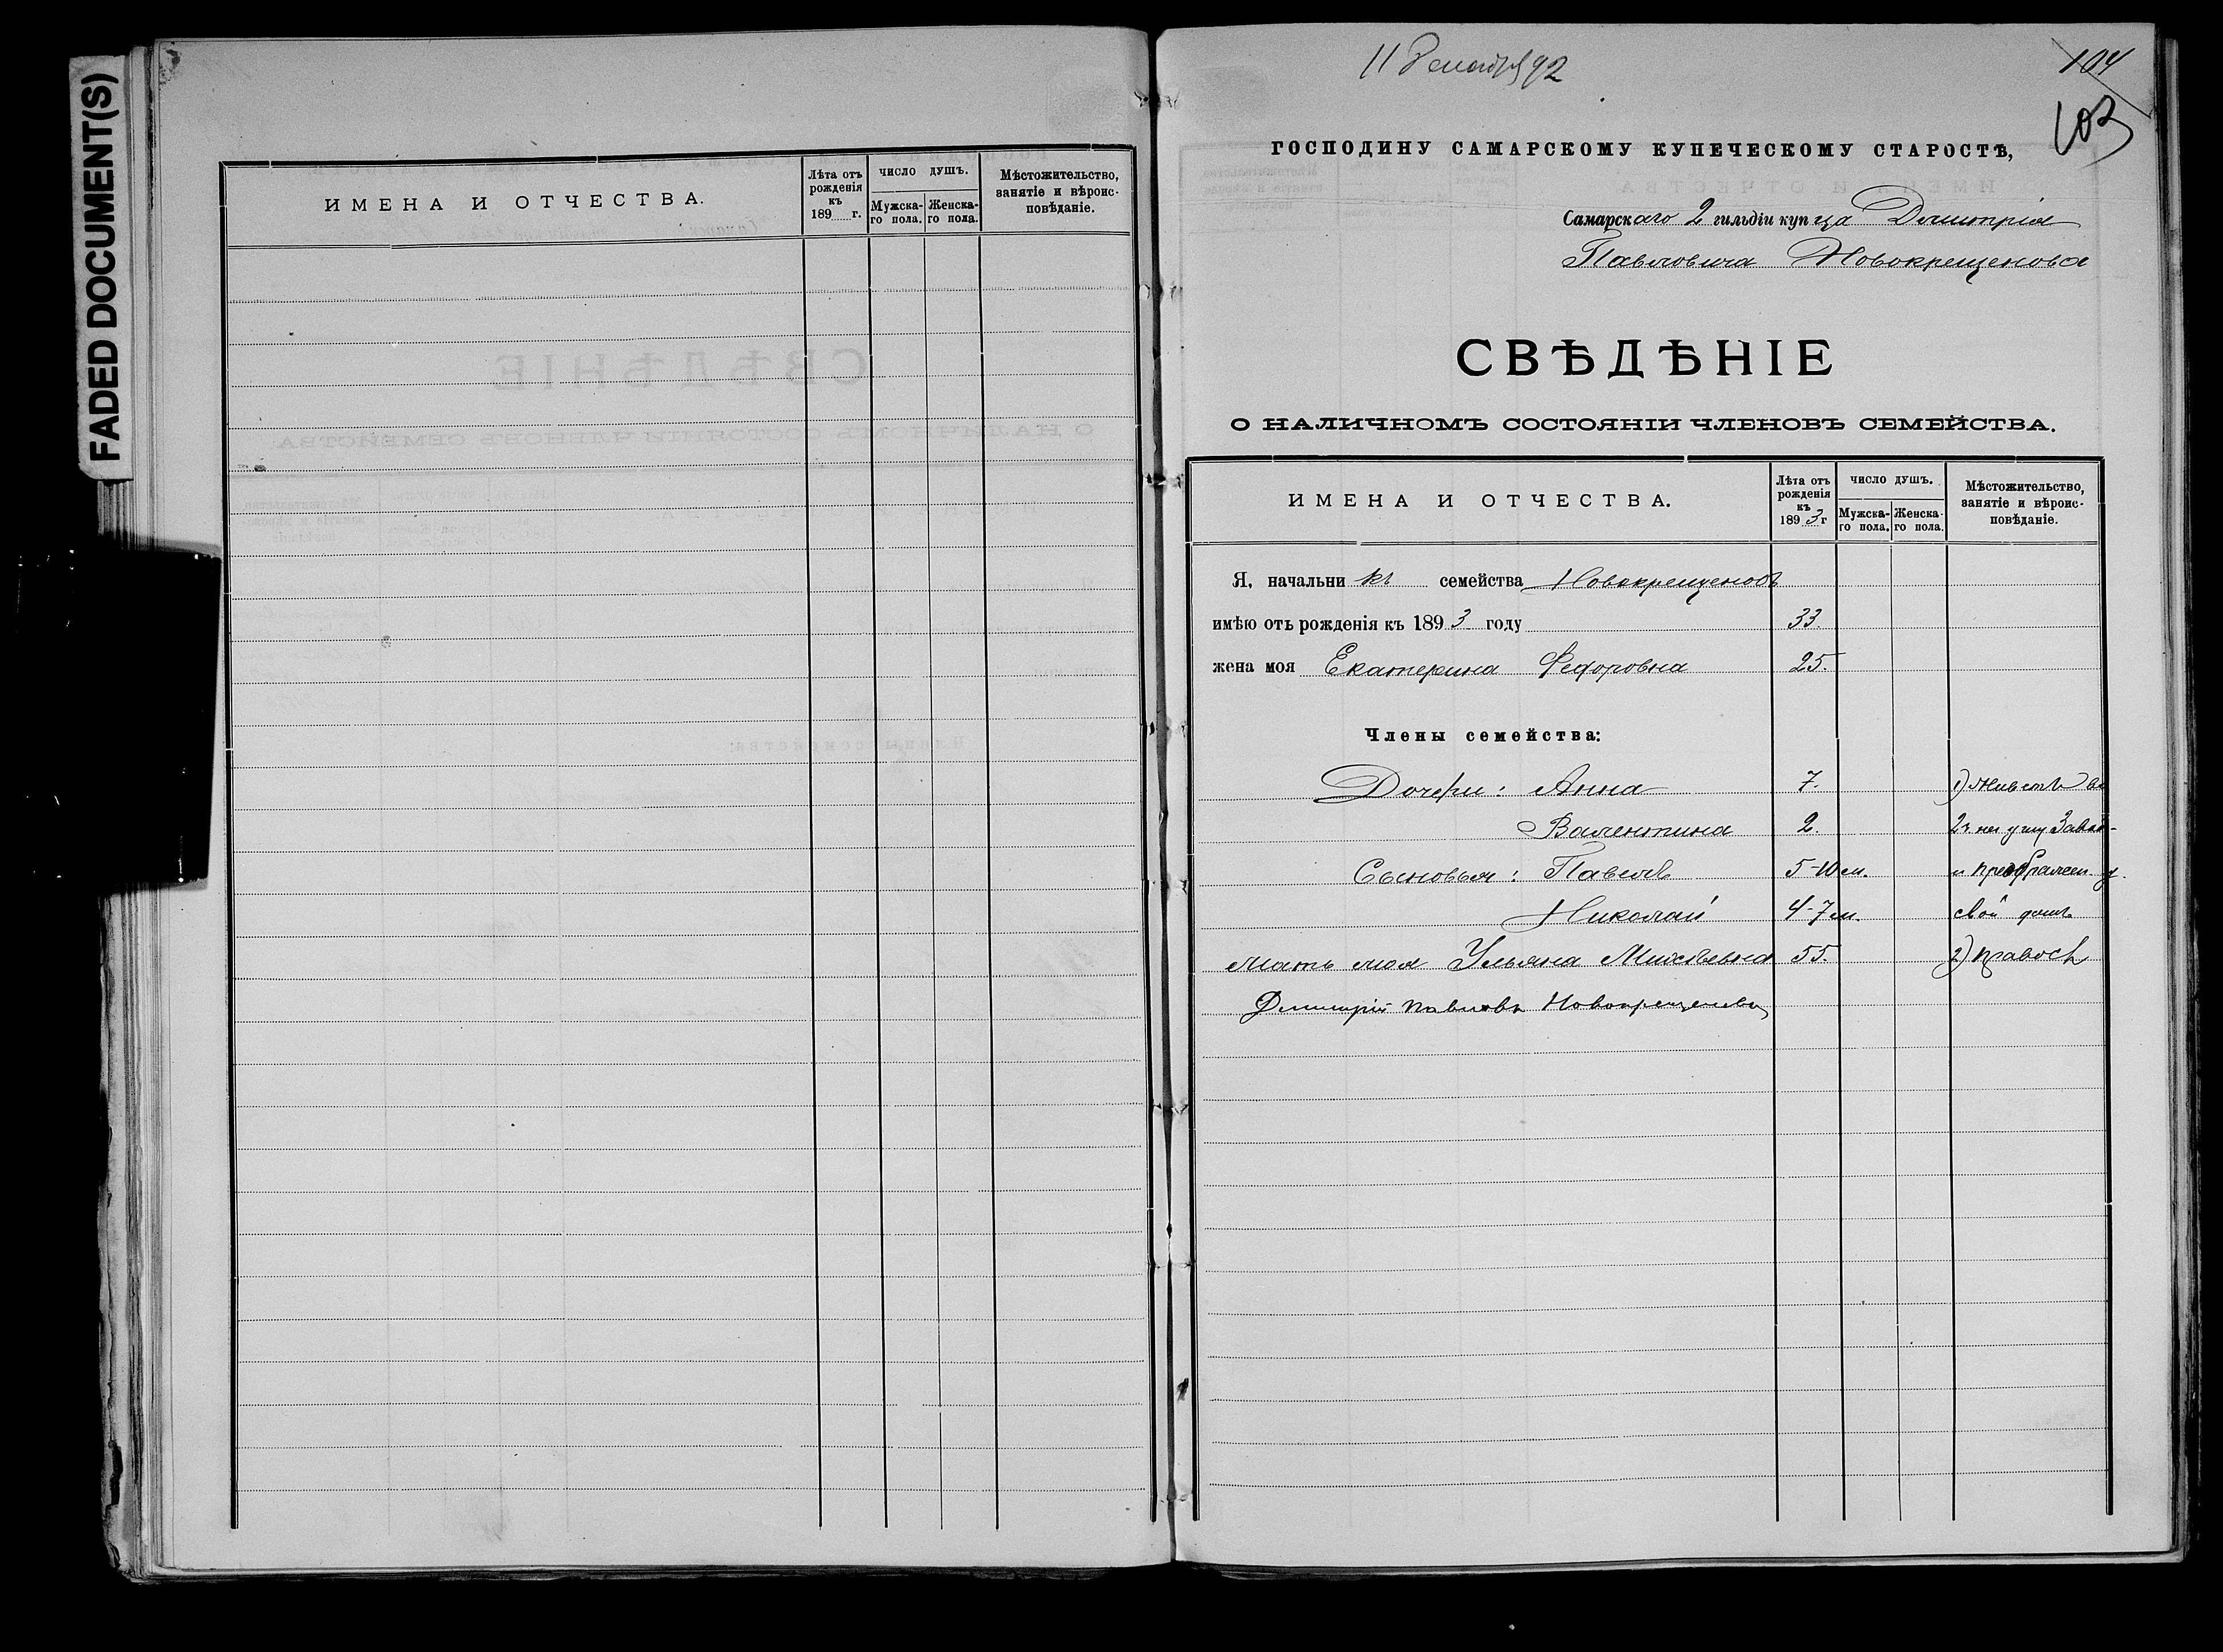 FADED DOCUMENT(S)
ИМЕНА И ОТЧЕСТВА.
Лѣта отъ рожденія къ 189 г.
ЧИСЛО ДУШЪ.
Мужска-го пола.
Женска-го пола.
Мѣстожительство, занятіе и вѣроис-повѣданіе.
11 Декабря 92
104
103
ГОСПОДИНУ САМАРСКОМУ КУПЕЧЕСКОМУ СТАРОСТѢ,
Самарскаго 2 гильдіи купца Дмитрія
Павловича Новокрещенова
СВѢДѢНІЕ
О НАЛИЧНОМЪ СОСТОЯНІИ ЧЛЕНОВЪ СЕМЕЙСТВА.
ИМЕНА И ОТЧЕСТВА.
Лѣта отъ рожденія къ 1893 г
ЧИСЛО ДУШЪ.
Мужска-го пола.
Женска-го пола.
Мѣстожительство, занятіе и вѣроис-повѣданіе.
Я, начальникъ семейства Новокрещеновъ
имѣю отъ рожденія къ 1893 году 33.
жена моя Екатерина Федоровна 25.
Члены семейства:
Дочери: Анна 7. 1) живетъ во
Валентина 2. 2й на углу Завод-
Сыновья: Павелъ 5-10 м. и преображен. у.
Николай 4-7 м. свой домъ
мать моя Ульяна Михѣевна 55. 2) правосл
Дмитрій Павловъ Новокрещеновъ